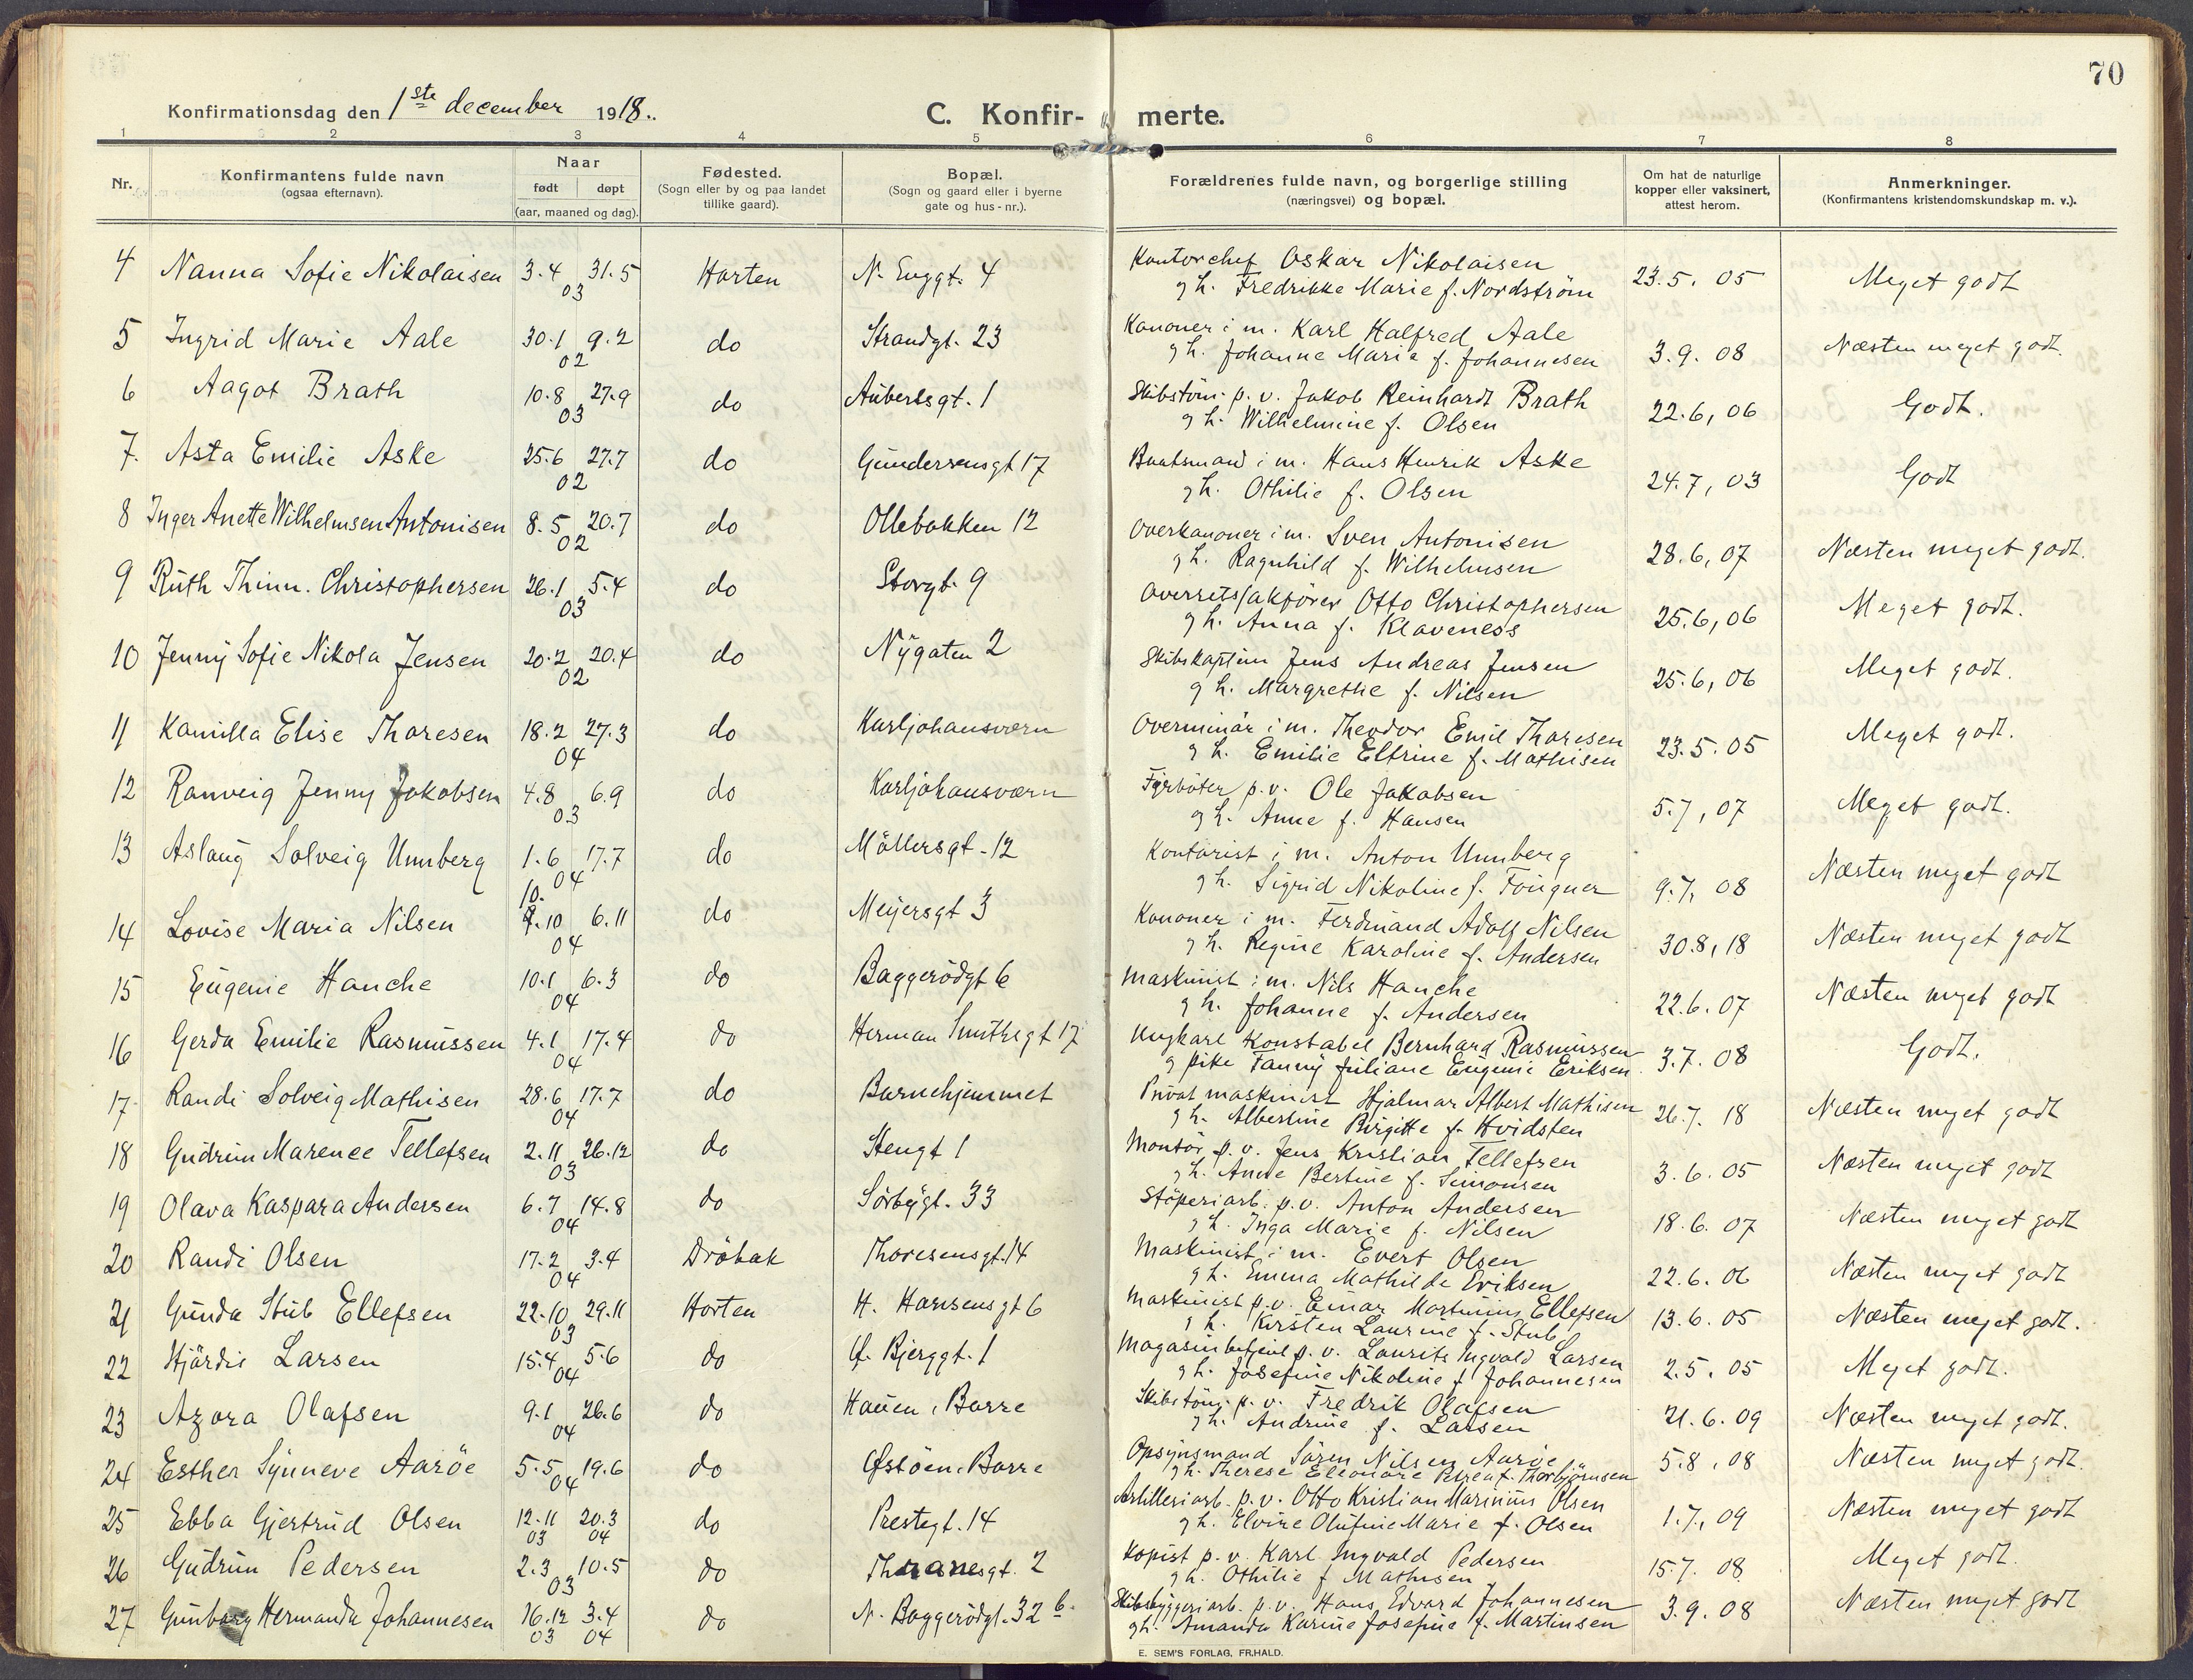 70
Konfirmationsdag den 1ste december 1918.
C. Konfir- merte.
1 2 3 4 5 6 7 8
Nr. Konfirmantens fulde navn (ogsaa efternavn). Naar født døpt (aar, maaned og dag). Fødested. (Sogn eller by og paa landet tillike gaard). Bopæl. (Sogn og gaard eller i byerne gate og hus-nr.). Forældrenes fulde navn, og borgerlige stilling (næringsvei) og bopæl. Om hat de naturlige kopper eller vaksinert, attest herom. Anmerkninger. (Konfirmantens kristendomskundskap m. v.).
4 Nanna Sofie Nikolaisen 3.4 31.5 03 Horten N. Enggt. 4 Kontorchef Oskar Nikolaisen 23.5, 05 Meget godt
g h. Fredrikke Marie f. Nordström
5 Ingrid Marie Aale 30.1 9.2 02 do Strandgt. 23 Kanoner i m. Karl Halfred Aale 3.9.08 Næsten meget godt.
g h. Johanne Marie f. Johannesen
6 Aagot Brath 10.8 27.9 03 do Aubertsgt. 1 Skibstöm. p. v. Jakob Reinhardt Brath 22.6, 06 Godt.
g h. Wilhelmine f. Olsen
7. Asta Emilie Aske 25.6 27.7 02 do Gundersensgt 17 Baatsmand i m. Hans Henrik Aske 24.7, 03 Godt
g h. Othilie f. Olsen
8 Inger Anette Wilhelmsen Antonisen 8.5 20.7 02 do Ollebakken 12 Overkanoner i m. Sven Antonisen 28.6, 07 Næsten meget godt.
g h. Ragnhild f. Wilhelmsen
9 Ruth Thinn. Christophersen 26.1 5.4 03 do Storgt. 9 Overretssakfører Otto Christophersen 25.6, 06 Meget godt.
g h. Anna f. Klaveness
10 Jenny Sofie Nikola Jensen 20.2 20.4 02 do Nygaten 2 Skibskaptein Jens Andreas Jensen 25.6, 06 Meget godt.
g h. Margrethe f. Nilsen
11 Kamilla Elise Thoresen 18.2 27.3 04 do Karljohansværn Overminör i m. Theodor Emil Thoresen 23.5.05 Meget godt.
g h. Emilie Eltrine f. Mathisen
12 Ranveig Jenny Jakobsen 4.8 6.9 03 do Karljohansværn Fyrböter p.v. Ole Jakobsen 5.7, 07 Meget godt.
g h. Anne f. Hansen
13 Aslaug Solveig Unnberg 1.6 17.7 04 do Möllersgt. 12 Kontorist i m. Anton Unnberg 9.7, 08 Næsten meget godt
g h. Sigrid Nikoline f. Fougner
14 Lovise Maria Nilsen 10. 9.10 6.11 04 do Meyersgt 3 Kanoner i m. Ferdinand Adolf Nilsen 30.8, 18 Næsten meget godt
g h. Regine Karoline f. Andersen
15 Eugenie Hanche 10.1 6.3 04 do Baggerödgt 6 Maskinist i m. Nils Hanche 22.6.07 Næsten meget godt
g h. Johanne f. Andersen
16 Gerda Emilie Rasmussen 4.1 17.4 04 do Herman Smithsgt 17 Ungkarl Konstabel Bernhard Rasmussen 3.7.08 Godt.
g pike Fanny Juliane Eugenie Eriksen
17 Randi Solveig Mathisen 28.6 17.7 04 do Barnehjemmet Privat maskinist Hjalmar Albert Mathisen 26.7. 18 Næsten meget godt
g h. Albertine Birgitte f. Hvidsten
18 Gudrun Marenee Tellefsen 2.11 26.12 03 do Stengt 1 Montör p.v. Jens Kristian Tellefsen 3.6.05 Næsten meget godt
g h. Anne Bertine f. Simonsen
19 Olava Kaspara Andersen 6.7 14.8 04 do Sörbygt. 33 Stöperiarb. p.v. Anton Andersen 18.6.07 Næsten meget godt
g h. Inga Marie f. Nilsen
20 Randi Olsen 17.2 3.4 04 Dröbak Thoresensgt. 14 Maskinist i m. Evert Olsen 22.6.06 Næsten meget godt
g h. Emma Mathilde Eriksen
21 Gunda Stub Ellefsen 22.10 29.11 03 Horten H. Hansensgt 6 Maskinist p.v. Einar Martinius Ellefsen 13.6.05 Næsten meget godt.
g h. Kirsten Laurine f. Stub
22 Hjördis Larsen 15.4 5.6 04 do O. Bjerggt. 1 Magasinbetjent p.v. Laurits Ingvald Larsen 2.5.05 Meget godt.
g h. Josefine Nikoline f Johannesen
23 Azora Olafsen 9.1 26.6 04 do Hauen, Borre Skibstöm. p. v. Fredrik Olafsen 21.6.09 Næsten meget godt.
g h. Andrine f. Larsen
24 Esther Synneve Aaröe 5.5 19.6 04 do Østöen, Borre Opsynsmand Sören Nilsen Aaröe 5.8, 08 Næsten meget godt.
g h. Therese Eleonore Petrea f. Thorbjörnsen
25 Ebba Gjertrud Olsen 12.11 03 20.3 04 do Prestegt. 14 Artilleriarb. p.v. Otto Kristian Marinius Olsen 1.7, 09 Næsten meget godt
g h. Elvire Olufine Marie f. Olsen
26 Gudrun Pedersen 2.3 10.5 03 do Thranesgt. 2 Kopist p.v. Karl Ingvald Pedersen 15.7. 08 Meget godt.
g h. Othilie f Mathisen
27 Gunborg Hermanda Johannesen 16.12 03 3.4 04 do N. Baggerödgt. 32 b. Skibsbyggeriarb. p.v. Hans Edvard Johannesen 3.9.08 Næsten meget godt
g h. Amanda Karine Josefine f. Martinsen
E. SEM'S FORLAG, FR.HALD.